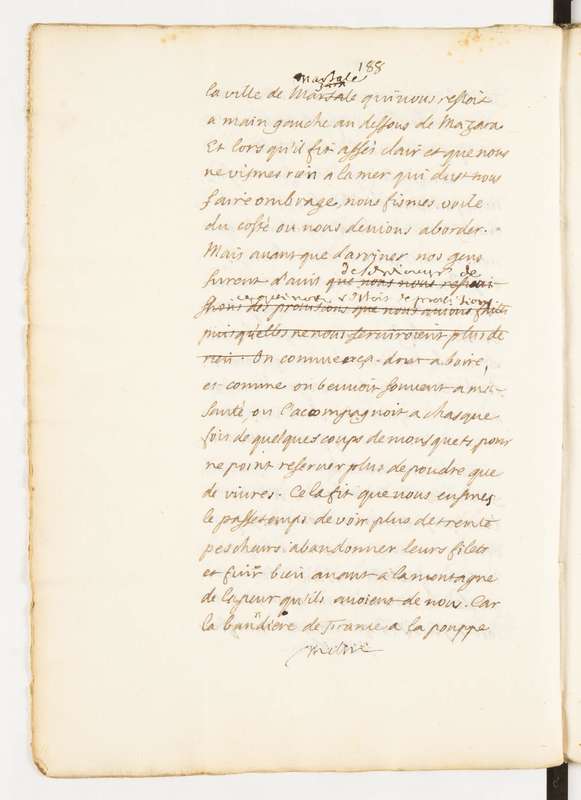 188
Marsale
la ville de Marsale qui nous restoit
a main gauche au dessous de Mazara
Et lors qu'il fit assés clair et que nous
ne vismes rien a la mer qui dust nous
faire ombrage, nous fismes voile
du costé ou nous devions aborder.
Mais avant que d'arriver nos gens
de
furent d'avis que nous nous
ce qui nous restoit de provisions
des provisions que nous avions faites
puis qu'elles ne nous serviroient plus de
rien. On commença donc a boire,
et comme on beuvoit souvent a ma
santé, on l'accompagnoit a chasque
fois de quelques coups de mousquets pour
ne point reserver plus de poudre que
de vivres. Cela fit que nous eusmes
le passetemps de voir plus de trente
pescheurs abandonner leurs filets
et fuir bien avant a la montagne
de la peur qu'ils avoient de nous. Car
la bandiere de France a la pouppe